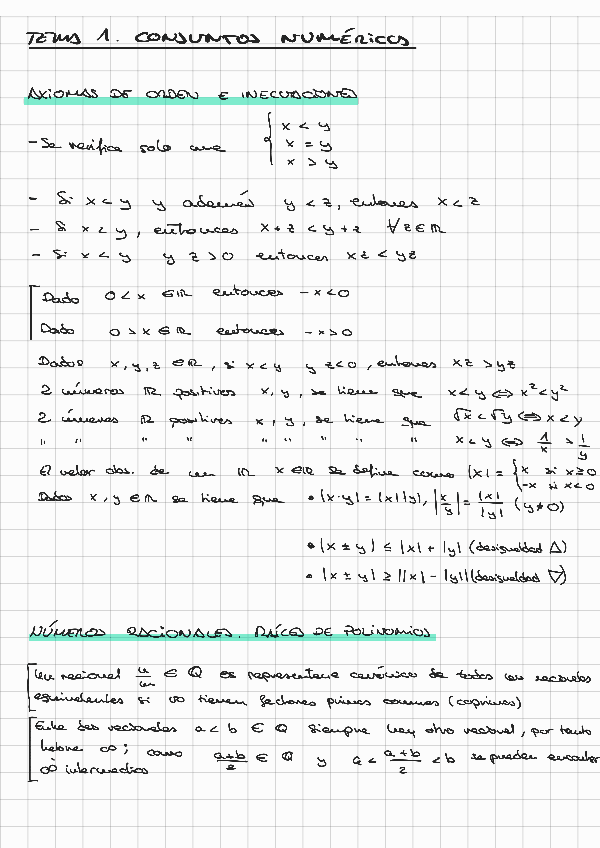 TEMA 1. CONJUNTOS NUMÉRICOS
AXIOMAS DE ORDEN E INECUACIONES
- Se verifica solo que { x < y
x = y
x > y
- Si x < y y además y < z, entonces x < z
- Si x < y, entonces x + z < y + z ∀ z ∈ ℝ
- Si x < y y z > 0 entonces xz < yz
Dado 0 < x ∈ ℝ entonces -x < 0
Dado 0 > x ∈ ℝ entonces -x > 0
Dados x, y, z ∈ ℝ, si x < y y z < 0, entonces xz > yz
2 números ℝ positivos x, y, se tiene que x < y ⇔ x² < y²
2 números ℝ positivos x, y, se tiene que √x < √y ⇔ x < y
" " " " " " " " " x < y ⇔ 1/x > 1/y
El valor abs. de un ℝ x ∈ ℝ se define como |x| = { x si x ≥ 0
-x si x < 0
Dados x, y ∈ ℝ se tiene que • |x·y| = |x||y|, |x/y| = |x|/|y| (y ≠ 0)
• |x ± y| ≤ |x| + |y| (desigualdad △)
• |x ± y| ≥ ||x| - |y|| (desigualdad ▽)
NÚMEROS RACIONALES. RAÍCES DE POLINOMIOS
Un racional n/m ∈ ℚ es representante canónico de todos los racionales
equivalentes si no tienen factores primos comunes (coprimos)
Entre dos racionales a < b ∈ ℚ siempre hay otro racional, por tanto
habrá ∞; como a+b/2 ∈ ℚ y a < a+b/2 < b se pueden encontrar
∞ intermedios